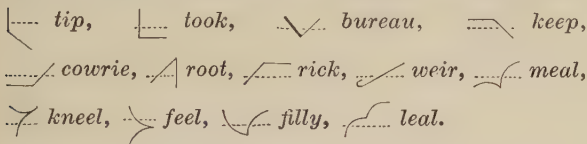 tip, took, bureau, keep,
cowrie, root, rick, weir, meal,
kneel, feel, filly, leal.